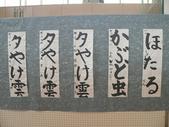 ほたる
かぶと虫
夕やけ雲
夕やけ雲
夕やけ雲